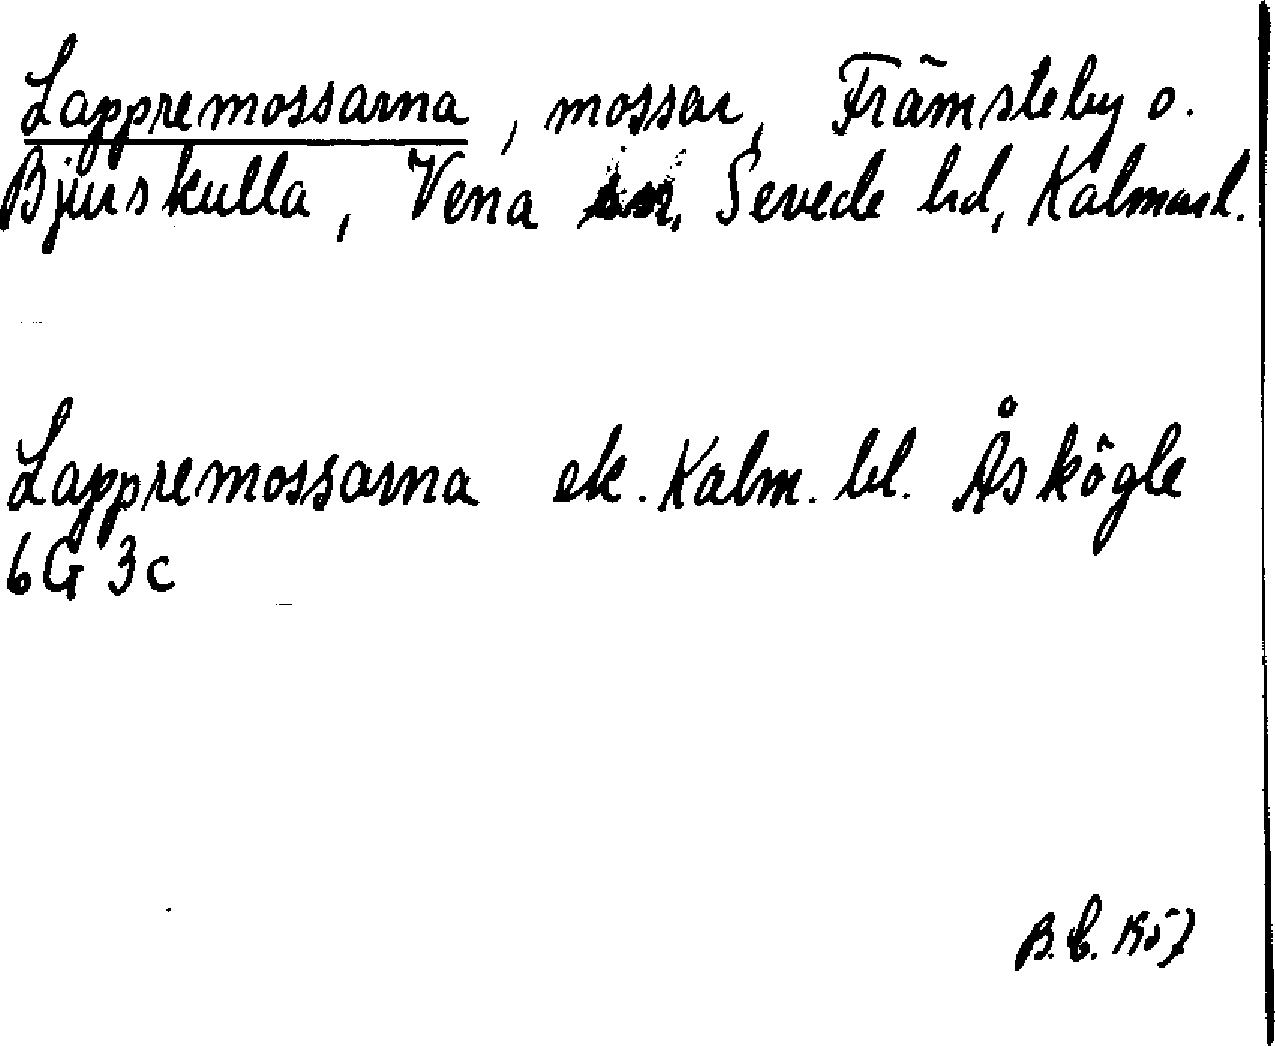 Lappremossarna, mossar, Främsteby o.
Bjurskulla, Vena sn, Sevede hd, Kalmar l.
Lappremossarna ek. Kalm. bl. Åskögle
6G 3c
B.C. 1957